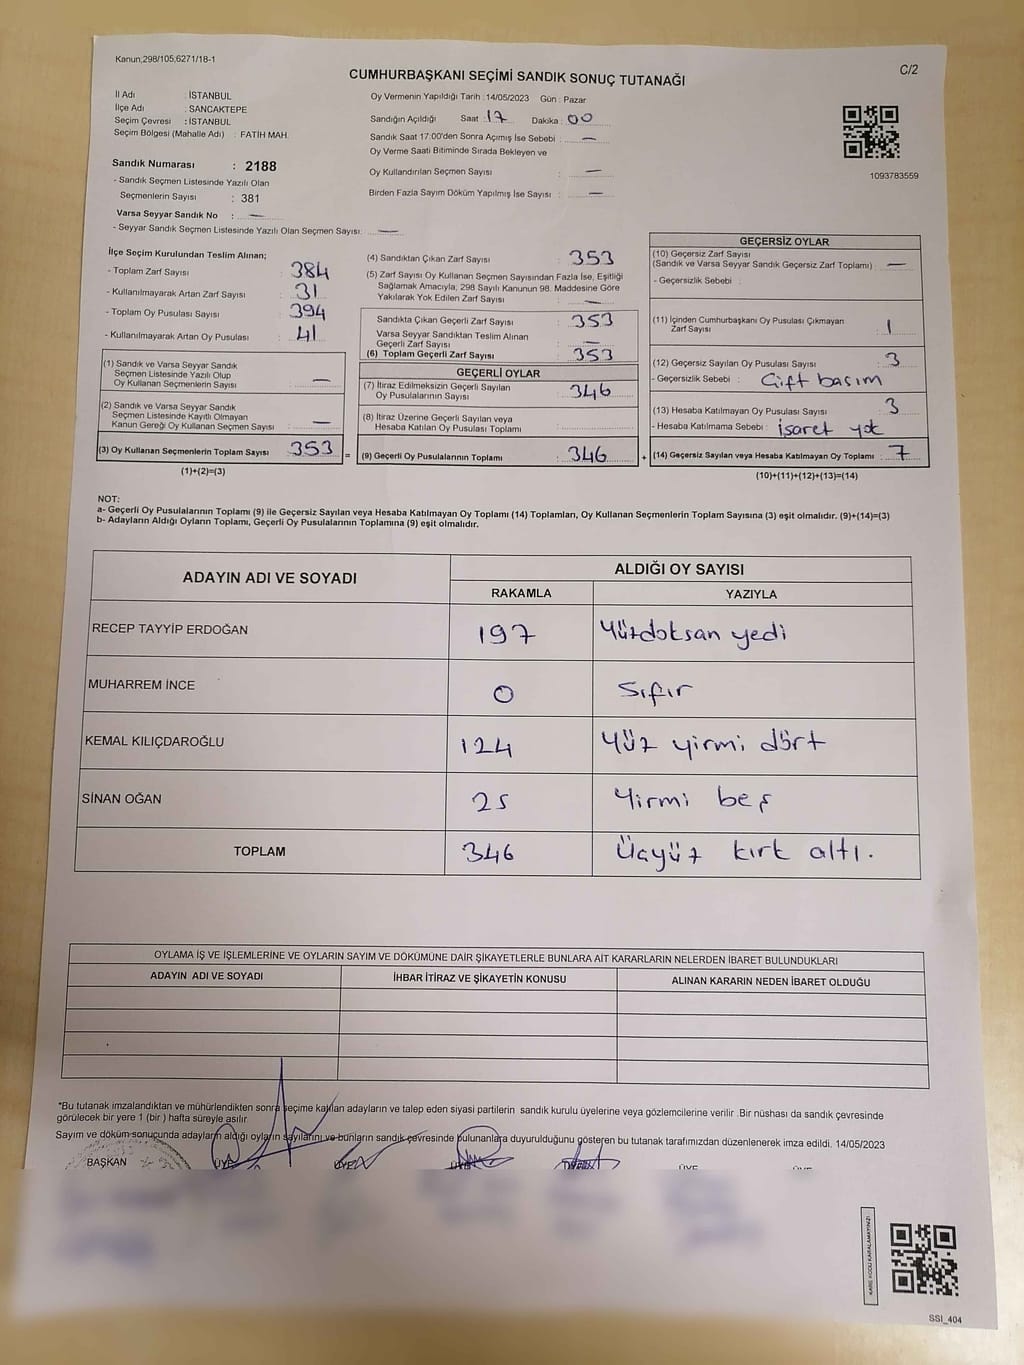 Kanun;298/105;6271/18-1
C/2
CUMHURBAŞKANI SEÇİMİ SANDIK SONUÇ TUTANAĞI
İl Adı : İSTANBUL
İlçe Adı : SANCAKTEPE
Seçim Çevresi : İSTANBUL
Seçim Bölgesi (Mahalle Adı) : FATİH MAH.
Sandık Numarası : 2188
- Sandık Seçmen Listesinde Yazılı Olan
Seçmenlerin Sayısı : 381
Varsa Seyyar Sandık No : —
- Seyyar Sandık Seçmen Listesinde Yazılı Olan Seçmen Sayısı: —
Oy Vermenin Yapıldığı Tarih :14/05/2023 Gün : Pazar
Sandığın Açıldığı Saat : 17 Dakika : 00
Sandık Saat 17:00'den Sonra Açımış İse Sebebi : —
Oy Verme Saati Bitiminde Sırada Bekleyen ve
Oy Kullandırılan Seçmen Sayısı : —
Birden Fazla Sayım Döküm Yapılmış İse Sayısı : —
1093783559
İlçe Seçim Kurulundan Teslim Alınan;
- Toplam Zarf Sayısı : 384
- Kullanılmayarak Artan Zarf Sayısı : 31
- Toplam Oy Pusulası Sayısı : 394
- Kullanılmayarak Artan Oy Pusulası : 41
(1) Sandık ve Varsa Seyyar Sandık
Seçmen Listesinde Yazılı Olup
Oy Kullanan Seçmenlerin Sayısı : —
(2) Sandık ve Varsa Seyyar Sandık
Seçmen Listesinde Kayıtlı Olmayan
Kanun Gereği Oy Kullanan Seçmen Sayısı : —
(3) Oy Kullanan Seçmenlerin Toplam Sayısı : 353 =
(1)+(2)=(3)
(4) Sandıktan Çıkan Zarf Sayısı : 353
(5) Zarf Sayısı Oy Kullanan Seçmen Sayısından Fazla İse, Eşitliği
Sağlamak Amacıyla, 298 Sayılı Kanunun 98. Maddesine Göre
Yakılarak Yok Edilen Zarf Sayısı : —
Sandıkta Çıkan Geçerli Zarf Sayısı : 353
Varsa Seyyar Sandıktan Teslim Alınan
Geçerli Zarf Sayısı : —
(6) Toplam Geçerli Zarf Sayısı : 353
GEÇERLİ OYLAR
(7) İtiraz Edilmeksizin Geçerli Sayılan
Oy Pusulalarının Sayısı : 346
(8) İtiraz Üzerine Geçerli Sayılan veya
Hesaba Katılan Oy Pusulası Toplamı :
(9) Geçerli Oy Pusulalarının Toplamı : 346 +
GEÇERSİZ OYLAR
(10) Geçersiz Zarf Sayısı
(Sandık ve Varsa Seyyar Sandık Geçersiz Zarf Toplamı) : —
- Geçersizlik Sebebi :
(11) İçinden Cumhurbaşkanı Oy Pusulası Çıkmayan
Zarf Sayısı : 1
(12) Geçersiz Sayılan Oy Pusulası Sayısı : 3
- Geçersizlik Sebebi : Çift basım
(13) Hesaba Katılmayan Oy Pusulası Sayısı : 3
- Hesaba Katılmama Sebebi : işaret yok
(14) Geçersiz Sayılan veya Hesaba Katılmayan Oy Toplamı : 7
(10)+(11)+(12)+(13)=(14)
NOT:
a- Geçerli Oy Pusulalarının Toplamı (9) ile Geçersiz Sayılan veya Hesaba Katılmayan Oy Toplamı (14) Toplamları, Oy Kullanan Seçmenlerin Toplam Sayısına (3) eşit olmalıdır. (9)+(14)=(3)
b- Adayların Aldığı Oyların Toplamı, Geçerli Oy Pusulalarının Toplamına (9) eşit olmalıdır.
ADAYIN ADI VE SOYADI
ALDIĞI OY SAYISI
RAKAMLA YAZIYLA
RECEP TAYYİP ERDOĞAN 197 Yüzdoksan yedi
MUHARREM İNCE 0 Sıfır
KEMAL KILIÇDAROĞLU 124 Yüz yirmi dört
SİNAN OĞAN 25 Yirmi beş
TOPLAM 346 Üçyüz kırk altı.
OYLAMA İŞ VE İŞLEMLERİNE VE OYLARIN SAYIM VE DÖKÜMÜNE DAİR ŞİKAYETLERLE BUNLARA AİT KARARLARIN NELERDEN İBARET BULUNDUKLARI
ADAYIN ADI VE SOYADI İHBAR İTİRAZ VE ŞİKAYETİN KONUSU ALINAN KARARIN NEDEN İBARET OLDUĞU
*Bu tutanak imzalandıktan ve mühürlendikten sonra seçime katılan adayların ve talep eden siyasi partilerin sandık kurulu üyelerine veya gözlemcilerine verilir .Bir nüshası da sandık çevresinde
görülecek bir yere 1 (bir ) hafta süreyle asılır
Sayım ve döküm sonuçunda adayların aldığı oyların sayılarını ve bunların sandık çevresinde bulunanlara duyurulduğunu gösteren bu tutanak tarafımızdan düzenlenerek imza edildi. 14/05/2023
BAŞKAN ÜYE ÜYE ÜYE ÜYE ÜYE
KARE KODU KARALAMAYINIZ!
SSI_404